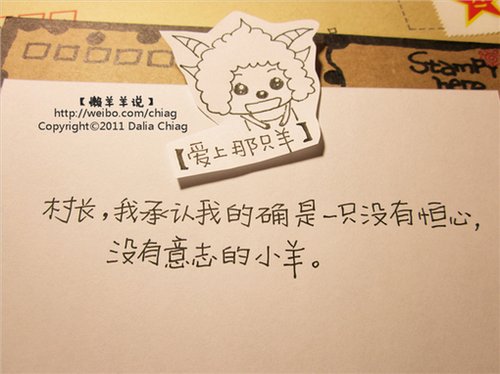 【懒羊羊说】
http://weibo.com/chiag
Copyright©2011 Dalia Chiag
【爱上那只羊】
村长,我承认我的确是一只没有恒心,
没有意志的小羊。